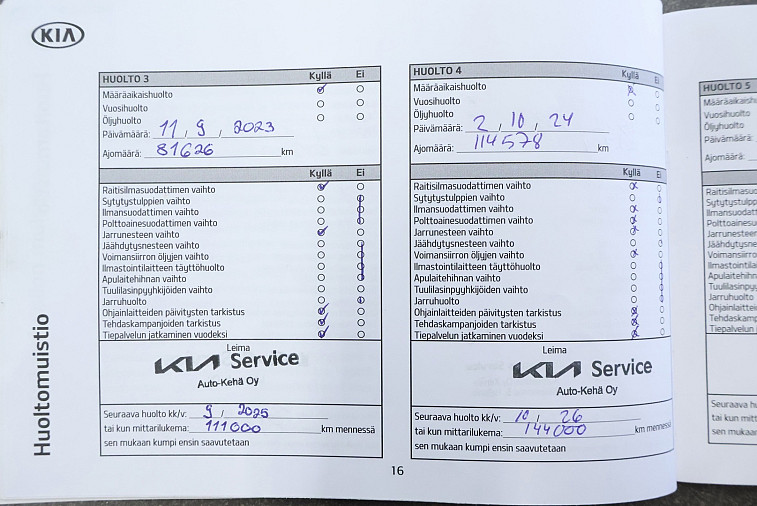 KIA
Huoltomuistio
HUOLTO 3 Kyllä Ei
Määräaikaishuolto
Vuosihuolto
Öljyhuolto
Päivämäärä: 11, 9, 2023
Ajomäärä: 81626 km
Kyllä Ei
Raitisilmasuodattimen vaihto
Sytytystulppien vaihto
Ilmansuodattimen vaihto
Polttoainesuodattimen vaihto
Jarrunesteen vaihto
Jäähdytysnesteen vaihto
Voimansiirron öljyjen vaihto
Ilmastointilaitteen täyttöhuolto
Apulaitehihnan vaihto
Tuulilasinpyyhkijöiden vaihto
Jarruhuolto
Ohjainlaitteiden päivitysten tarkistus
Tehdaskampanjoiden tarkistus
Tiepalvelun jatkaminen vuodeksi
Leima
KIA Service
Auto-Kehä Oy
Seuraava huolto kk/v: 9, 2025
tai kun mittarilukema: 111000 km mennessä
sen mukaan kumpi ensin saavutetaan
HUOLTO 4 Kyllä Ei
Määräaikaishuolto
Vuosihuolto
Öljyhuolto
Päivämäärä: 2, 10, 24
Ajomäärä: 114578 km
Kyllä Ei
Raitisilmasuodattimen vaihto
Sytytystulppien vaihto
Ilmansuodattimen vaihto
Polttoainesuodattimen vaihto
Jarrunesteen vaihto
Jäähdytysnesteen vaihto
Voimansiirron öljyjen vaihto
Ilmastointilaitteen täyttöhuolto
Apulaitehihnan vaihto
Tuulilasinpyyhkijöiden vaihto
Jarruhuolto
Ohjainlaitteiden päivitysten tarkistus
Tehdaskampanjoiden tarkistus
Tiepalvelun jatkaminen vuodeksi
Leima
KIA Service
Auto-Kehä Oy
Seuraava huolto kk/v: 10, 26
tai kun mittarilukema: 144000 km mennessä
sen mukaan kumpi ensin saavutetaan
16
HUOLTO 5
Vuosihuolto
Öljyhuolto
Päivämäärä:
Ajomäärä: